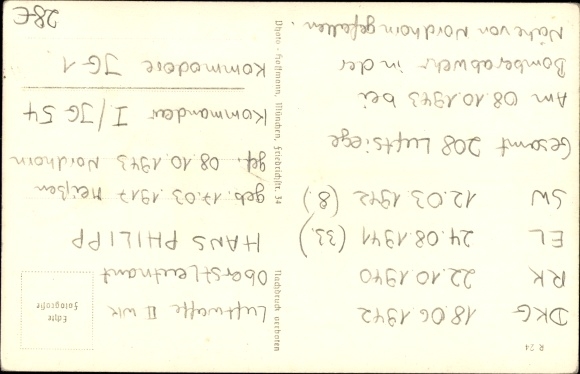 R 24
DKG 18.06.1942
RK 22.10.1940
EL 24.08.1941 (33.)
SW 12.03.1942 (8.)
Gesamt 208 Luftsiege
Am 08.10.1943 bei
Bomberabwehr in der
Nähe von Nordhorn gefallen.
Nachdruck verboten
Photo-Hoffmann, München, Friedrichstr. 34
Echte
Fotografie
Luftwaffe II WK
Oberstleutnant
HANS PHILIPP
geb. 17.03.1917 Meißen
gef. 08.10.1943 Nordhorn
Kommandeur I/JG 54
Kommodore JG 1
28€